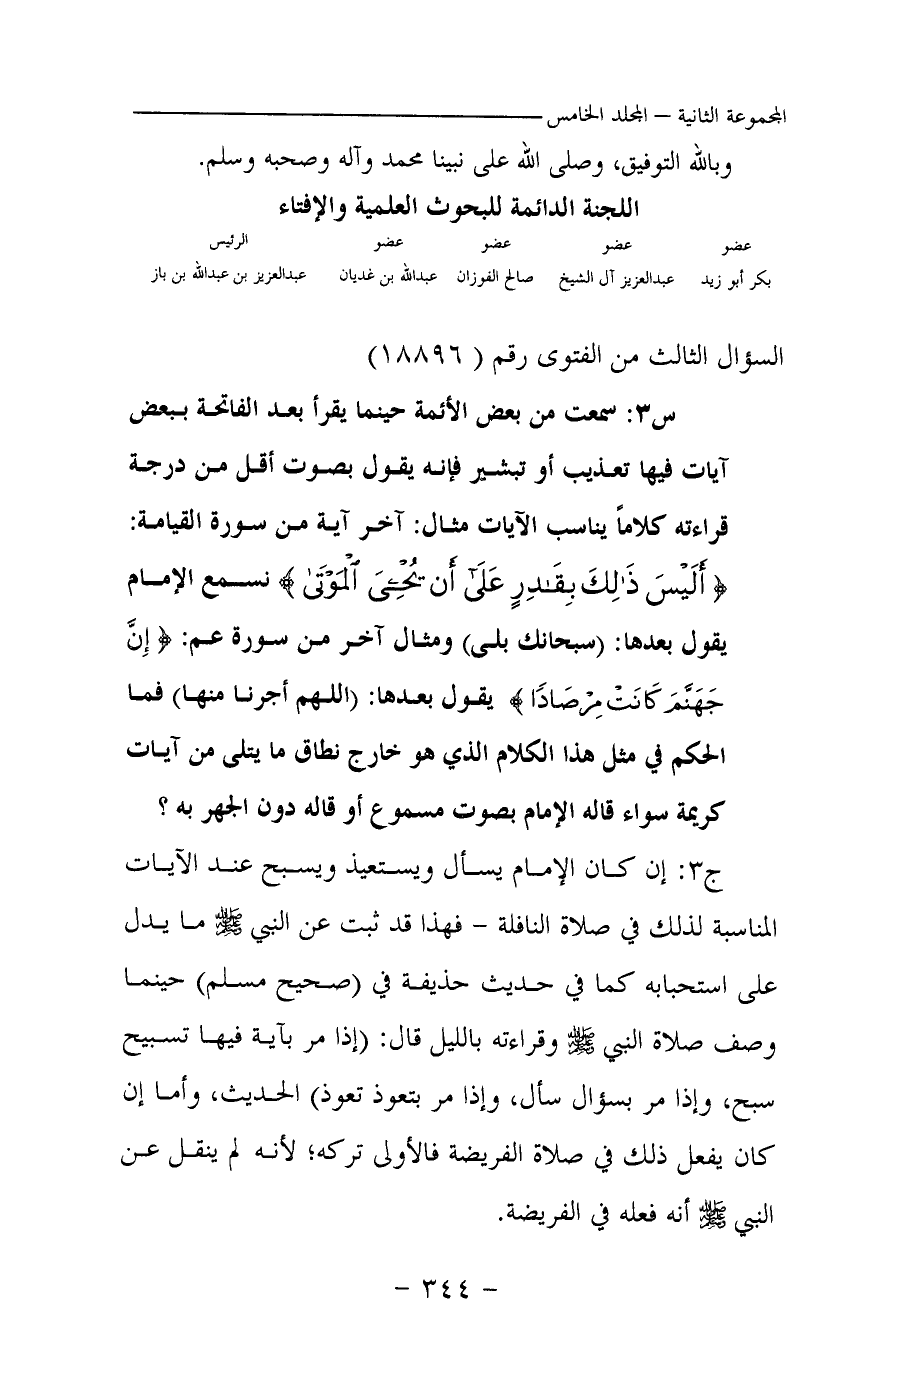 المجموعة الثانية – المجلد الخامس
وبالله التوفيق، وصلى الله على نبينا محمد وآله وصحبه وسلم.
اللجنة الدائمة للبحوث العلمية والإفتاء
عضو عضو عضو عضو الرئيس
بكر أبو زيد عبدالعزيز آل الشيخ صالح الفوزان عبدالله بن غديان عبدالعزيز بن عبدالله بن باز
السؤال الثالث من الفتوى رقم ( ١٨٨٩٦)
س٣: سمعت من بعض الأئمة حينما يقرأ بعد الفاتحة ببعض
آيات فيها تعذيب أو تبشير فإنه يقول بصوت أقل من درجة
قراءته كلاماً يناسب الآيات مثال: آخر آية من سورة القيامة:
﴿ أَلَيْسَ ذَٰلِكَ بِقَـٰدِرٍ عَلَىٰٓ أَن تُحْـِۧىَ ٱلْمَوْتَىٰ ﴾ نسمع الإمام
يقول بعدها: (سبحانك بلى) ومثال آخر من سورة عم: ﴿ إِنَّ
جَهَنَّمَ كَانَتْ مِرْصَادًا ﴾ يقول بعدها: (اللهم أجرنا منها) فما
الحكم في مثل هذا الكلام الذي هو خارج نطاق ما يتلى من آيات
كريمة سواء قاله الإمام بصوت مسموع أو قاله دون الجهر به ؟
ج٣: إن كان الإمام يسأل ويستعيذ ويسبح عند الآيات
المناسبة لذلك في صلاة النافلة – فهذا قد ثبت عن النبي ﷺ ما يدل
على استحبابه كما في حديث حذيفة في (صحيح مسلم) حينما
وصف صلاة النبي ﷺ وقراءته بالليل قال: (إذا مر بآية فيها تسبيح
سبح، وإذا مر بسؤال سأل، وإذا مر بتعوذ تعوذ) الحديث، وأما إن
كان يفعل ذلك في صلاة الفريضة فالأولى تركه؛ لأنه لم ينقل عن
النبي ﷺ أنه فعله في الفريضة.
– ٣٤٤ –